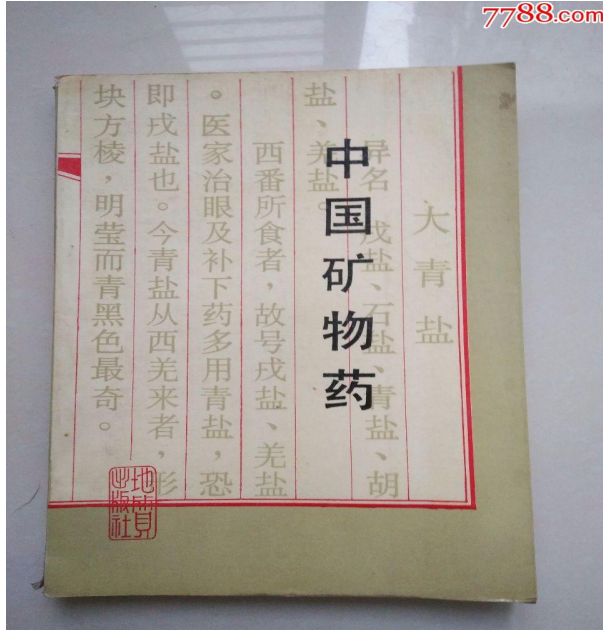 7788.com
中国矿物药
大青盐
异名 戎盐、石盐、青盐、胡
盐、羌盐。
西番所食者，故号戎盐、羌盐
。医家治眼及补下药多用青盐，恐
即戎盐也。今青盐从西羌来者，形
块方棱，明莹而青黑色最奇。
地质
出版社